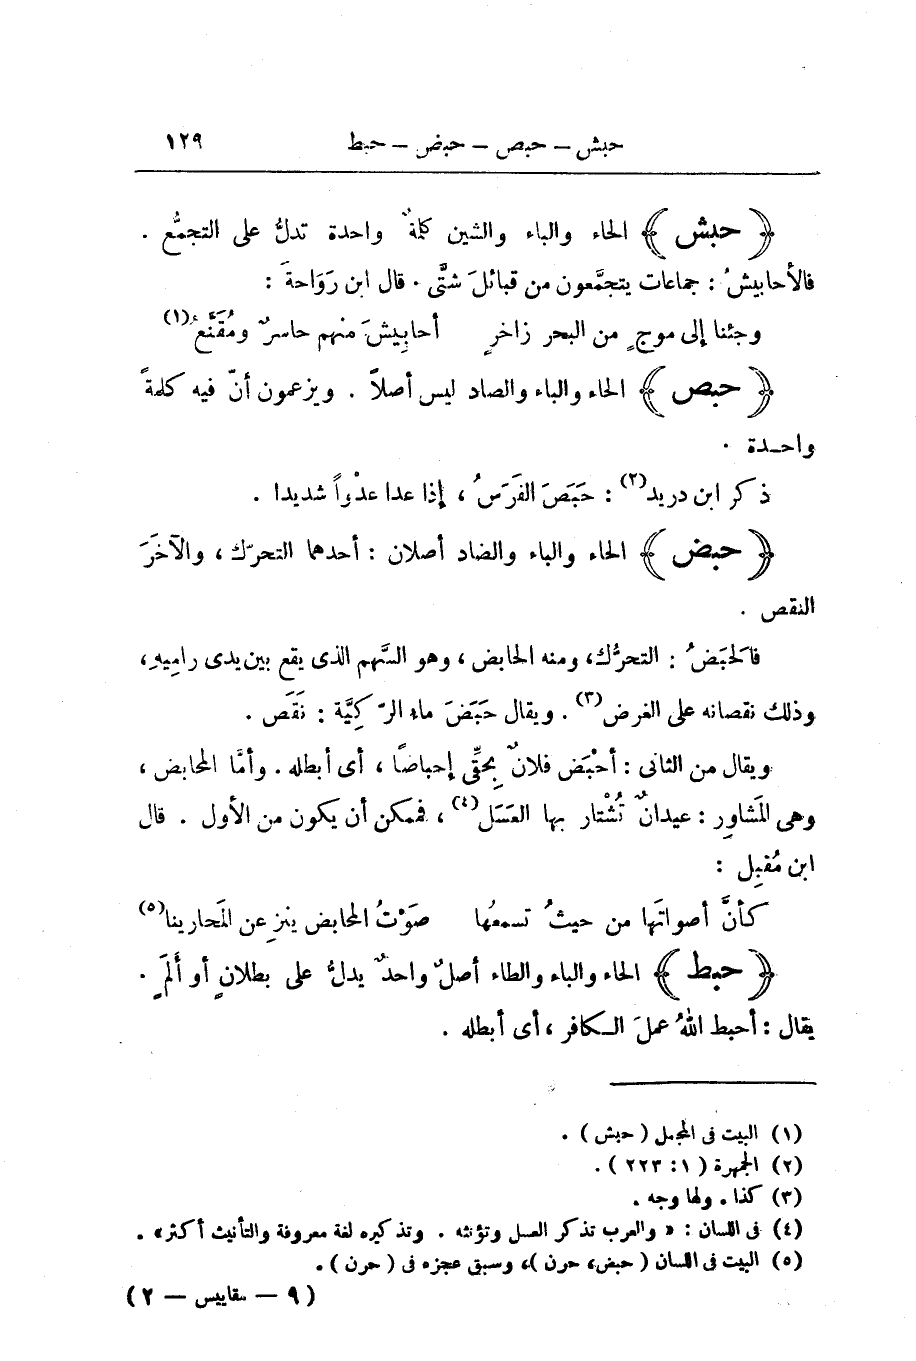 حبش – حبص – حبض – حبط ١٢٩
﴿ حبش ﴾ الحاء والباء والشين كلمةٌ واحدة تدلُّ على التجمُّع .
فالأحابيشُ : جماعات يتجمَّعون من قبائلَ شتَّى . قال ابن رَوَاحةَ :
وجئنا إلى موجٍ من البحر زاخرٍ أحابِيشَ منهم حاسرٌ ومُقَنَّعُ(١)
﴿ حبص ﴾ الحاء والباء والصاد ليس أصلاً . ويزعمون أنّ فيه كلمةً
واحـدة .
ذكر ابن دريد(٢) : حَبَصَ الفَرَسُ ، إذا عدا عدْواً شديدا .
﴿ حبض ﴾ الحاء والباء والضاد أصلان : أحدهما التحرّك ، والآخَرَ
النقص .
فالحَبَضُ : التحرُّك، ومنه الحابض ، وهو السَّهم الذى يقع بين يدى رامِيهِ،
وذلك نقصانه على الغرض(٣) . ويقال حَبَضَ ماء الرّكِيَّة : نَقَص .
ويقال من الثانى : أحْبَض فلانٌ بحقِّى إحباضًا ، أى أبطله . وأمَّا المحابض ،
وهى المَشاوِر : عيدانٌ تُشْتار بها العَسَل(٤) ، فممكن أن يكون من الأول . قال
ابن مُقبِل :
كأنَّ أصواتَها من حيثُ تسمعُها صَوْتُ المحابض ينزِعن المَحارينا(٥)
﴿ حبط ﴾ الحاء والباء والطاء أصلٌ واحدٌ يدلُّ على بطلانٍ أو أَلَمٍ .
يقال : أحبط اللهُ عملَ الـكافر ، أى أبطله .
(١) البيت فى المجمل ( حبش ) .
(٢) الجمهرة ( ١ : ٢٢٣ ) .
(٣) كذا . ولها وجه .
(٤) فى اللسان : « والعرب تذكر العسل وتؤنثه . وتذكيره لغة معروفة والتأنيث أكثر» .
(٥) البيت فى اللسان ( حبض، حرن )، وسبق عجزه فى ( حرن ) .
( ٩ – مقاييس – ٢ )